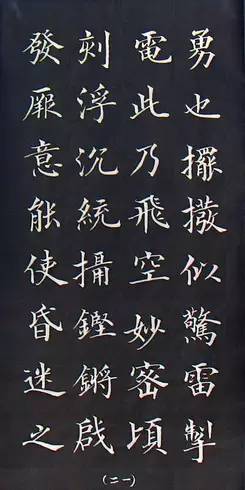 勇也擺撥似驚雷掣
電此乃飛空妙密頃
刻浮沉統攝鏗鏘啟
發厥意能使昏迷之
(一二)